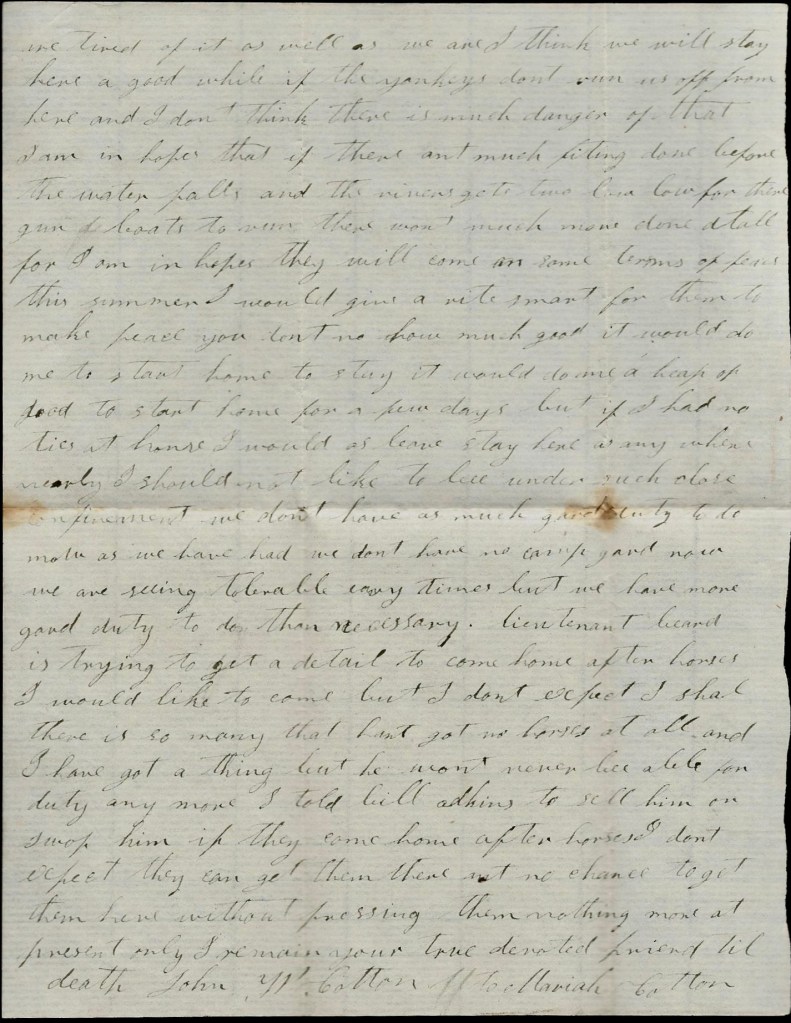 me tired of it as well as we are I think we will stay
here a good while if the yankeys dont run us off from
here and I dont think there is much danger of that
I am in hopes that if there ant much fiting done before
the water falls and the rivers gets two low for there
gun boats to run there wont much more done atall
for I am in hopes they will come on some terms of peas
this summer I would give a rite smart for them to
make peace you dont no how much good it would do
me to start home to stay it would do me a heap of
good to start home for a few days but if I had no
ties at home I would as leave stay here as any where
nearly I should not like to bee under such close
confinement we dont have as much gard duty to do
now as we have had we dont have no camp gard now
we are seeing tolerable easy times but we have more
gard duty to do than necessary. lieutenant beard
is trying to get a detail to come home after horses
I would like to come but I dont expect I shal
there is so many that hant got no horses at all and
I have got a thing but he wont never bee able for
duty any more I told bill adkins to sell him or
swop him if they come home after horses I dont
expect they can get them there ant no chance to get
them here without pressing them nothing more at
present only I remain your true devoted friend til
death John W Cotton to Mariah Cotton